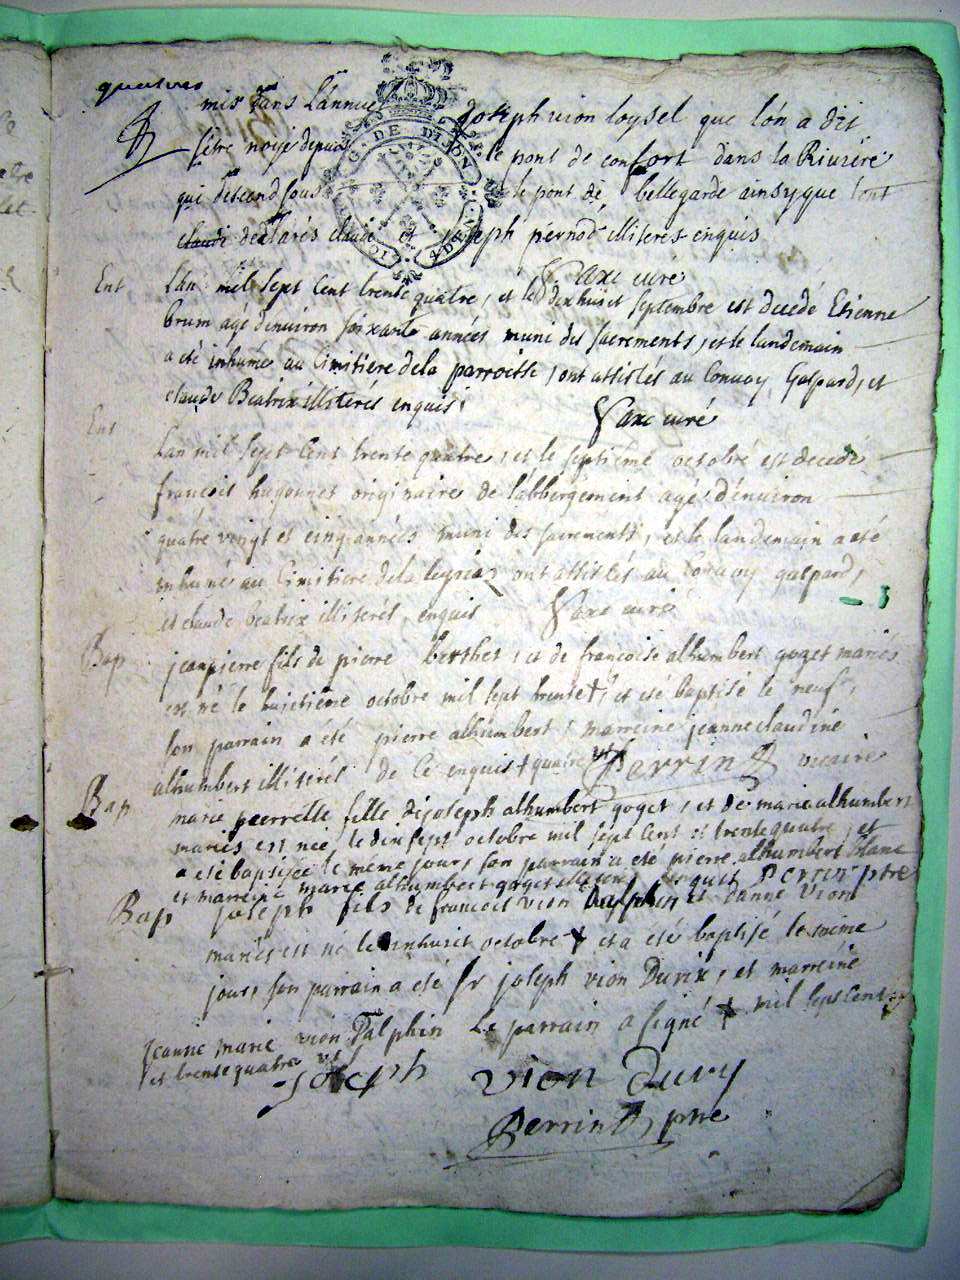 quatres
mis dans Lannuel Joseph vion loysel que lón a dit
sètre noyé depuis le pont de confort dans la Riviére
qui descend sous le pont de, bellegarde ainsy que lont
claudi declarés claude et joseph pernod illiterés enquis
Saxe curé
Ent Lan mil sept Cent trente quatre, et le dixhuict septembre est decedé Etienne
brum agé denuiron soixante années muni des sacrements, et le landemain
a été inhumé au Cimitiére de la parroisse, ont assistés au Convoy, Gaspard, et
claude Beatrix illitérés enquis,
Saxe curé
Ent
Lan mil sept Cent trente quatre, et le septiémé octobre est decedé
francois hugonnet originaire de labbergement agé d'énuiron
quatre vingt et cinq années muni des sacrements, et le landemain a eté
inhumé au Cimitiere de la ont assistés au Convoy gaspard,
et claude beatrix illiterés, enquis Saxe curé
Bap jeanpierre fils de pierre berthet, et de francoise alhumbert goget mariés
est né le huictiéme octobre mil sept trente +, et eté baptisé le neuf,
son parrain a été pierre alhumbert, marreine jeanne claudine
alhumbert illiterés de Ce enquis + quatre Perrin vicaire
Bap marie pierrette fille de joseph alhumbert goget, et de marie alhumbert
mariés est née, le dix sept octobre mil sept Cent et trente quatre, et
a eté baptisée le méme jour, son parrain a eté pierre alhumbert blanc
et marreine marie alhumbert goget enquis Perrin ptre
Bap joseph fils de francois vion Dalphin et Danne vion
mariés est né le huict octobre + et a eté baptisé le méme
jour, son parrain a eté sr joseph vion Durix, et marreiné
jeanne marie vion Dalphin Le parrain a signé + mil sept Cent
et trente quatre
joseph vion dury
Perrin ptre
G. DE DIJON